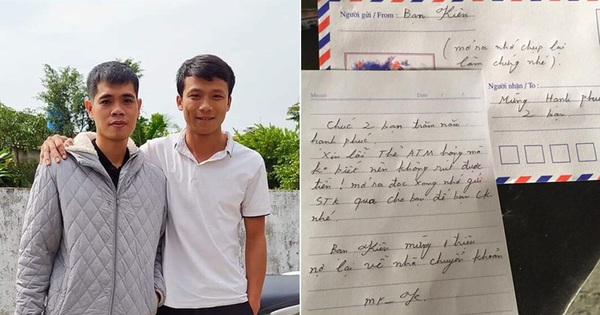 Người gửi / From: Ban Kiên
(mở ra nhớ chụp lại
làm chứng nhé).
Người nhận / To:
Mừng Hạnh phúc
2 bạn
Memo Date / /
Chúc 2 bạn trăm năm
hạnh phúc.
Xin lỗi Thẻ ATM hỏng mà
k biết nên không rút được
tiền! mở ra đọc xong nhớ gửi
STK qua cho ban để ban CK
nhé.
Ban Kiên mừng 1 triệu
nợ lại về nhà chuyển khoản